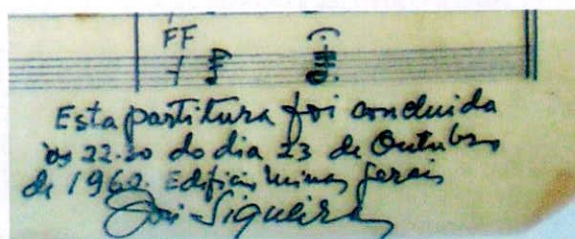 FF
Esta partitura foi concluida
às 22.20 do dia 23 de Outubro
de 1962. Edificio Minas Gerais
José Siqueira